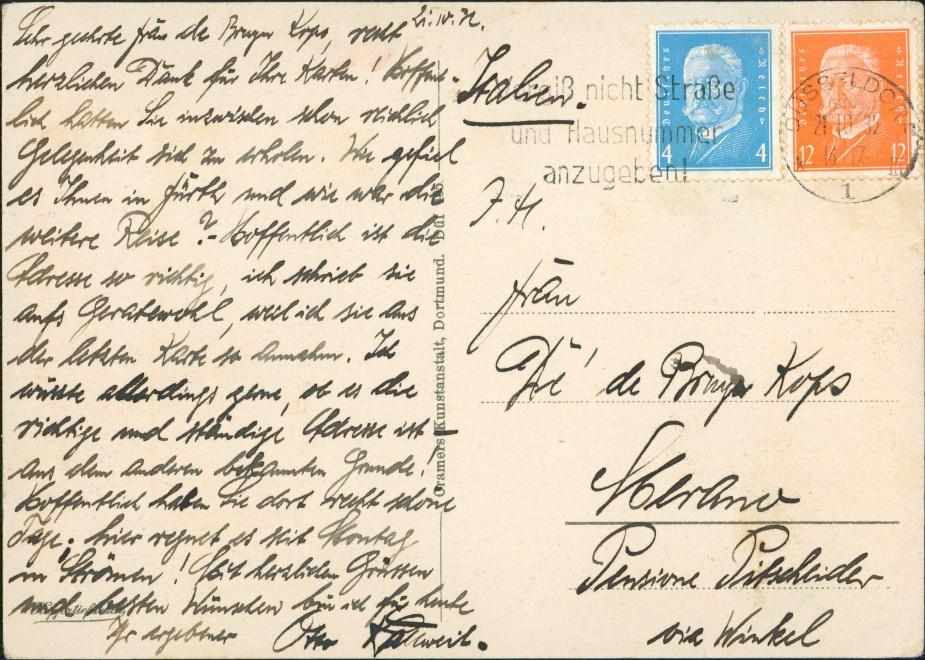 21.IV.32.
Sehr geehrte Frau de Bruyn Kops, recht
herzlichen Dank für Ihre Karten! Hoffent-
lich hatten Sie inzwischen schon reichlich
Gelegenheit sich zu erholen. Wie gefiel
es Ihnen in Fürth und wie war die
weitere Reise?- Hoffentlich ist die
Adresse so richtig, ich schrieb sie
aufs Geratewohl, weil ich sie aus
der letzten Karte so annahm. Ich
wüsste allerdings gerne, ob es die
richtige und ständige Adresse ist -
aus dem anderen bekannten Grunde!
Hoffentlich haben Sie dort recht schöne
Tage. Hier regnet es seit Montag
in Strömen! Mit herzlichen Grüssen
und besten Wünschen bin ich für heute
Ihr ergebener Otto
Cramers Kunstanstalt, Dortmund.
Deutsches Reich
4 4
Deutsches Reich
12 12
DÜSSELDORF
1
nicht Straße
und Hausnummer
anzugeben!
Italien.
Z. H.
Frau
de Bruyn Kops
Merano
Pensione Pitscheider
via Winkel